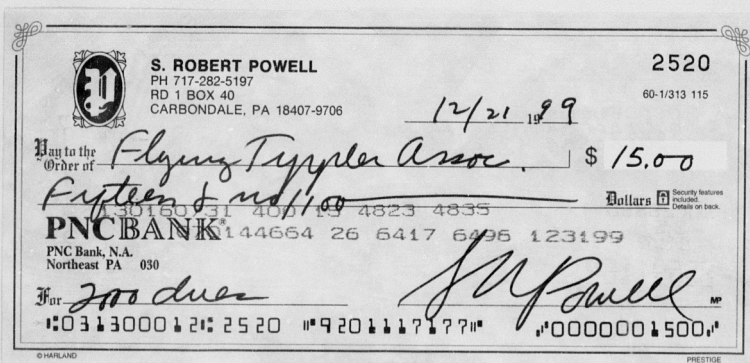 S. ROBERT POWELL
PH 717-282-5197
RD 1 BOX 40
CARBONDALE, PA 18407-9706
2520
60-1/313 115
12/21 1999
Pay to the Order of Flying Tippler Assoc. $ 15.00
Fifteen & no/100 Dollars
Security features included. Details on back.
130160731 400 13 4823 4835
PNCBANK 144664 26 6417 6496 123199
PNC Bank, N.A.
Northeast PA 030
For 2000 dues S R Powell MP
⑆031300012⑆ 2520 ⑈9201117177⑈ ⑈0000001500⑈
© HARLAND PRESTIGE